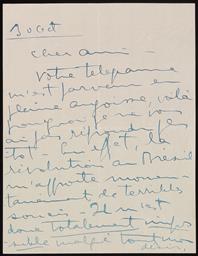 30 Oct
cher ami —
votre télégramme
m'est parvenu en
pleine angoisse, voilà
pourquoi je ne vous
ai pas répondu plus
tôt. En effet, la
révolution au Brésil
m'apporte momen-
tanément de terribles
soucis — Il m'est
donc totalement impos-
sible malgré tout mon
désir,